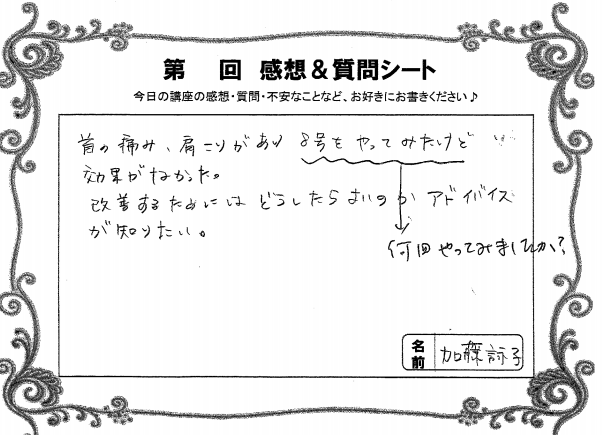 第 回 感想＆質問シート
今日の講座の感想・質問・不安なことなど、お好きにお書きください♪
首の痛み、肩こりがあり 8号をやってみたけど
効果がなかった。
改善するためにはどうしたらよいのか アドバイス
が知りたい。
何回やってみましたか?
名前 加藤 子